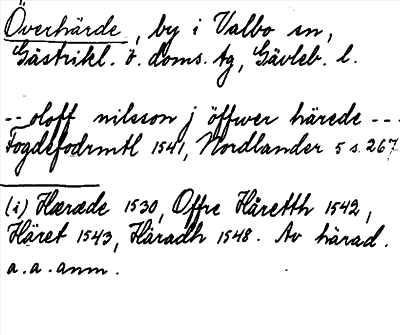 Överhärde, by i Valbo sn,
Gästrikl. ö. doms. tg, Gävleb. l.
-- oloff nilsson j öffwer härede ---
Fogdefodrmtl 1541, Nordlander 5 s. 267
(i) Hæræde 1530, Offre Håretth 1542,
Häret 1543, Häradh 1548. Av härad.
a. a. anm.